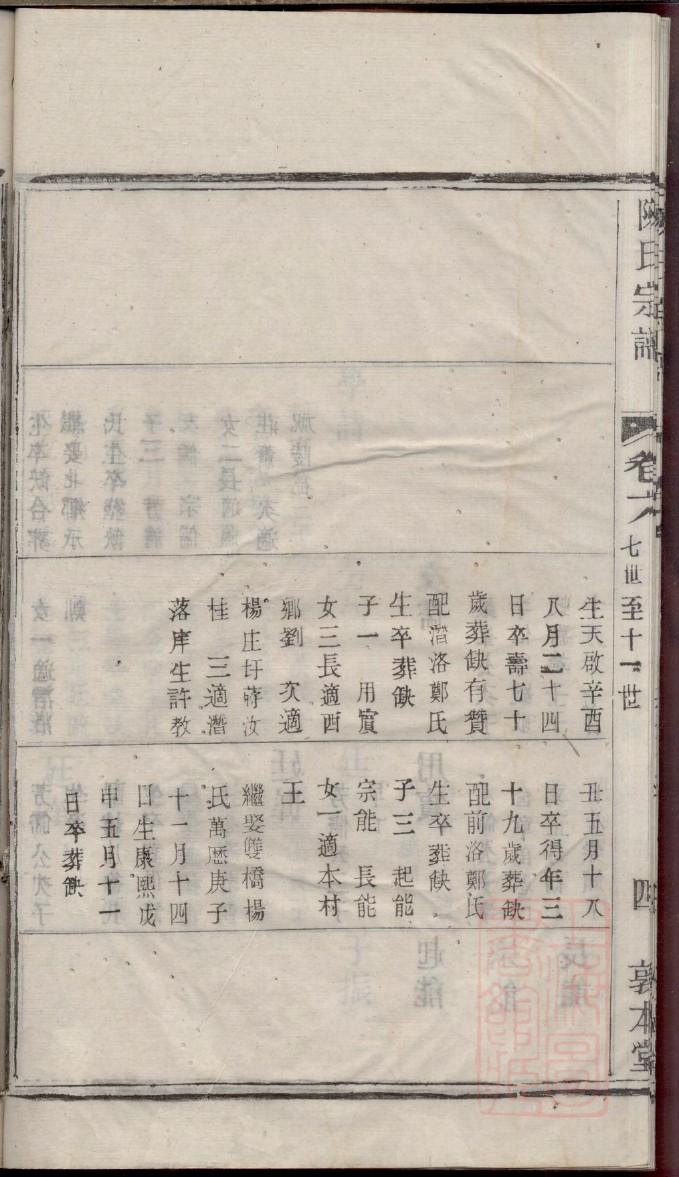 陳氏宗譜
卷六
七世至十一世
四
敦本堂
生天啟辛酉
八月二十四
日卒壽七十
歲葬缺有贊
配潛洛鄭氏
生卒葬缺
子一 用賓
女三長適西
鄉劉 次適
楊庄圩蔣汝
桂 三適潛
落庠生許教
丑五月十八
日卒得年三
十九歲葬缺
配前洛鄭氏
生卒葬缺
子三 起能
宗能 長能
女一適本村
王
繼娶雙橋楊
氏萬歷庚子
十一月十四
日生康熙戊
申五月十一
日卒葬缺